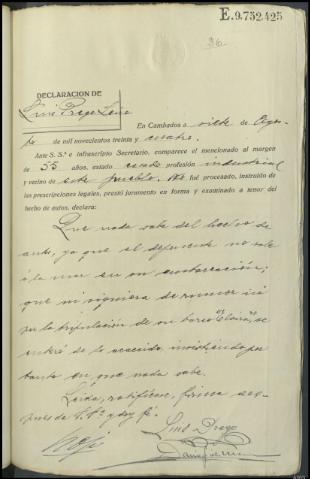 E.9.752.425
36.
DECLARACION DE
Luis Prego Leiro
En Cambados a siete de Agos-
to de mil novecientos treinta y cuatro.
Ante S. S.ª e infrascripto Secretario, comparece el mencionado al margen
de 55 años, estado casado profesión industrial
y vecino de este pueblo. No fué procesado, instruído de
las prescripciones legales, prestó juramento en forma y examinado a tenor del
hecho de autos, declara:
Que nada sabe del hecho de
autos, ya que el deponente no sale
a la mar en su embarcación;
que ni siquiera de rumor ni
por la tripulación de su barco se
enteró de lo ocurrido, insistiendo por
tanto en que nada sabe.
Leída, ratifican, firma des-
pués de S. Sª y doy fé.
Luis Prego